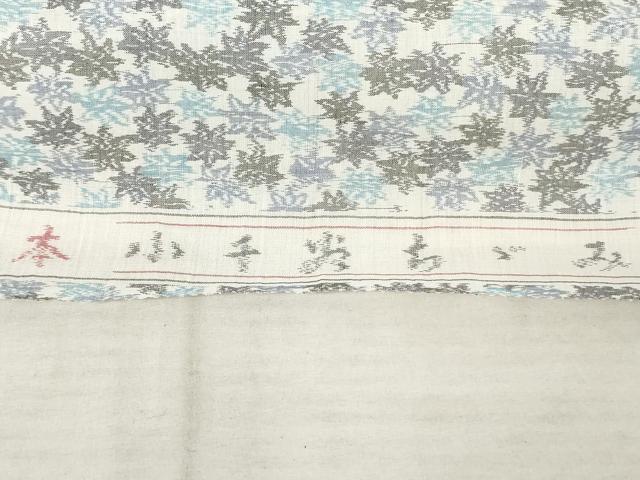 本 小千谷ちゞみ